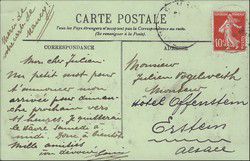 Merci de
CARTE POSTALE
Tous les Pays étrangers n'acceptent pas la Correspondance au recto
(Se renseigner à la Poste)
CORRESPONDANCE
ADRESSE
Mon cher Julien
Un petit mot pour
t'annoncer mon
arrivée pour dimanche
prochain vers
11 heures. Je quitterai
le Havre samedi à
midi.
Mille amitiés
ton dévoué
Monsieur
Julien Vogelweith
Hôtel Offenstein
Erstein
Alsace
10